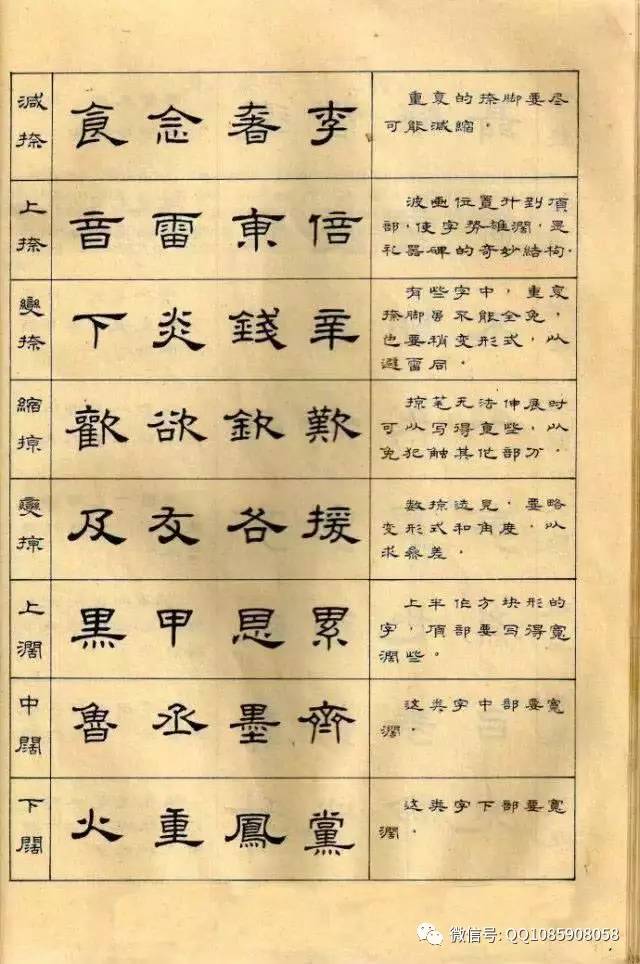 减捺
食 念 春 李
重复的捺脚要尽
可能减缩.
上捺
音 雷 東 倍
波画位置升到顶
部,使字势雄阔,是
礼器碑的奇妙结构.
變捺
下 炎 錢 辛
有些字中,重复
捺脚虽不能全免,
也要稍变形式,以
避雷同.
縮掠
歡 欲 欽 歎
掠笔无法伸展时
可以写得直些,以
免犯触其他部分.
變掠
及 友 各 援
数掠迭見,要略
变形式和角度,以
求参差.
上濶
黑 甲 思 累
上半作方块形的
字,頂部要写得寬
濶些。
中闊
魯 丞 墨 齊
这类字中部要寬
濶.
下闊
火 重 鳳 黨
这类字下部要寬
濶.
微信号: QQ1085908058